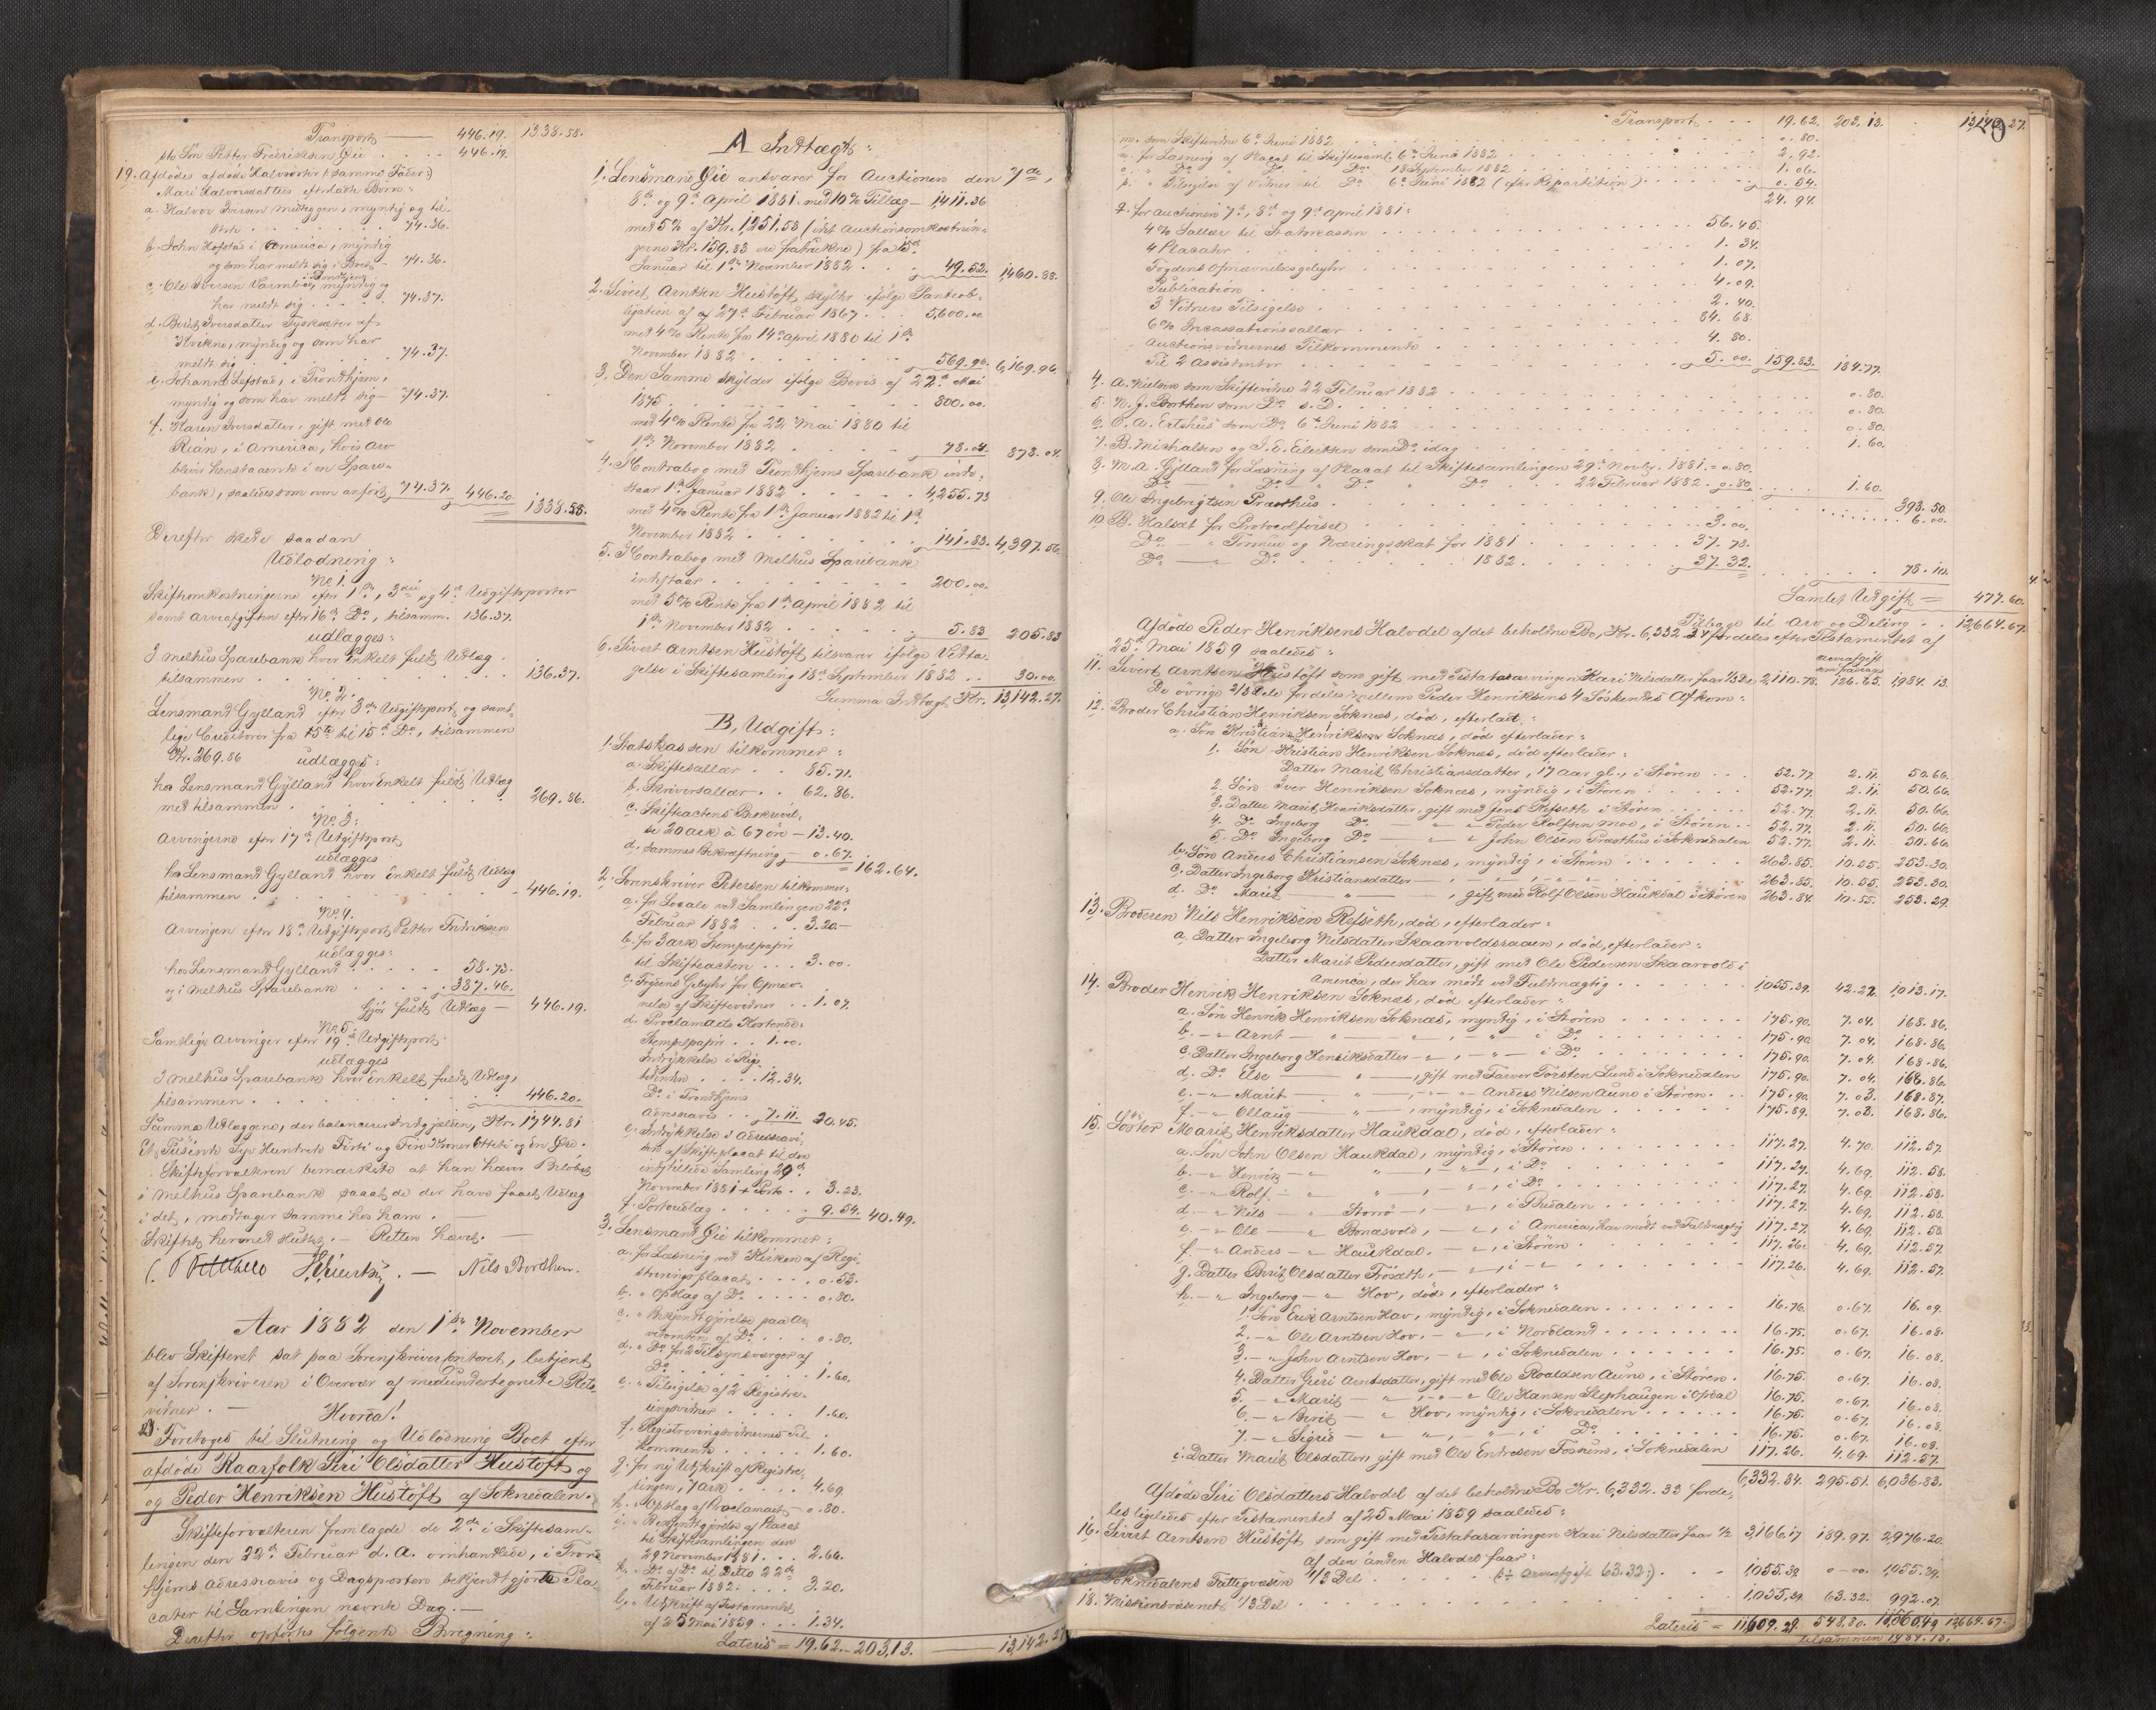 Transport — 446.19. 1338.58.
sts Søn Petter Fredriksen Øie . . . . 446.19.
19. Afdødes afdøde Halvbroder (samme Fader:)
Mari Halvorsdatters efterladte Børn:
a. Halvor Iversen Midteggen, myndig og til-
stede . . . . . . 74.36.
b. John Hofstad i America, myndig
og som har meldt sig i Boet - 74.36.
c. Ole Iversen Varmbo, i Trondhjem, myndig og
har meldt sig . . . . 74.37.
d. Berit Iversdatter
Kvikne, myndig og som har
meldt sig . . . . . 74.37.
e. Johan Lefstad, i Trondhjem,
myndig og som har meldt sig — 74.37.
f. Karen Iversdatter, gift med Ole
Rian, i America, hvis Arv
bliver henstaaende i en Spare-
bank, saaledes som oven anført 74.37. 446.20. 1338.58.
Derefter skede saadan
Udlodning:
No 1.
Skifteomkostningerne efter 1ste, 3die og 4de Udgiftsposter
samt Arveafgiften efter 16de Do, tilsamm. 136.37.
udlægges:
I Melhus Sparebank hvor enkelt fuldt Udlæg
tilsammen . . . . . . . . 136.37.
No 2.
Lensmand Gylland efter 3die Udgiftspost og samt-
lige Creditorer fra 5te til 15de Do, tilsammen
Kr. 269.86 udlægges:
hos Lensmand Gylland hvor enkelt fuldt Udlæg
med tilsammen . . . . . . . 269.86.
No 3.
Arvingerne efter 17de Udgiftspost
udlægges
hos Lensmand Gylland hvor enkelt fuldt Udlæg
tilsammen . . . . . . . . 446.19.
No 4.
Arvingen efter 18de Udgiftspost Petter Fredriksen
udlægges:
hos Lensmand Gylland . . . . . 58.73.
og i Melhus Sparebank . . . . . 387.46.
Gjør fuldt Udlæg — 446.19.
No 5.
Samtlige Arvinger efter 19de Udgiftspost
udlægges
I Melhus Sparebank hvor enkelt fuldt Udlæg,
tilsammen . . . . . . . . 446.20.
Summa Udlæggene, der balancerer Indtægten, Kr. 1744.81
Et Tusinde Syv Hundrede Firti og Fire Kroner Otteti og en Øre.
Skifteforvalteren bemærkede at han hæver Beløbet
i Melhus Sparebank saaat de der have faaet Udlæg
i det, modtager samme hos ham. —
Skiftet hermed sluttet. — Retten hævet. —
Nils Borthen.
Aar 1882 den 1ste November
blev Skifteret sat paa Sorenskriverkontoret, betjent
af Sorenskriveren i Overvær af medundertegnede Rets-
vidner. — Hvorda!
Foretoges til Slutning og Udlodning Boet efter
afdøde Kaarfolk Siri Olsdatter Hustoft og
og Peder Henriksen Hustoft af Soknedalen.
Skifteforvalteren fremlagde de 2de i Skiftesam-
lingen den 22de Februar d. A. omhandlede, i Trond-
hjems Adresseavis og Dagsposten bekjendtgjorte Pla-
cater til Samlingen nævnte Dag. —
Derefter opførtes følgende Beregning:
A Indtægt:
1. Lensmand Øie ansvarer for Auctionen den 7de,
8de og 9de April 1881 med 10% Tillæg — 1411.36
med 5% af Kr. 1,251.53 (idet Auctionsomkostnin-
gerne Kr. 159.83 ere fratrukne) fra 15de
Januar til 1ste November 1882 . . . 49.52. 1,460.88.
2. Sivert Arntsen Hustoft skylder ifølge Panteob-
ligation af 27de Februar 1867 . . . 5,600.00
med 4% Rente fra 14de April 1880 til 1ste
November 1882 . . . . . . . 569.96. 6,169.96
3. Den Samme skylder ifølge Bevis af 22de Mai
1875 . . . . . . . . . 800.00.
med 4% Rente fra 22 Mai 1880 til
1ste November 1882 . . . . . 78.04. 878.04.
4. I Contrabog med Trondhjems Sparebank inde-
staar 1ste Januar 1882 . . . . . 4,255.73
med 4% Rente fra 1ste Januar 1882 til 1ste
November 1882 . . . . . . 141.83. 4,397.56.
5. I Contrabog med Melhus Sparebank
indestaar . . . . . . . 200.00.
med 5% Rente fra 1ste April 1882 til
1ste November 1882 . . . . . 5.83 205.83
6. Sivert Arntsen Hustoft tilsvarer ifølge Vedta-
gelse i Skiftesamling 18de September 1882 . . 30.00.
Summa Indtægt Kr. 13,142.27.
B, Udgift:
1. Statskassen tilkommer:
a. Skiftesallær . . 85.71.
b. Skriversallær . . 62.86.
c. Skifteactens Beskrivel-
se 20 ark à 67 øre — 13.40.
d. Sammes Bekræftning — 0.67. 162.64.
2. Sorenskriver Petersen tilkommer:
a. for Locale ved Samlingen 22de
Februar 1882 . . . 3.20 —
b. for 3 ark Stempelpapir
til Skifteacten . . . 3.00.
c. Fogdens Gebyhr for Opnæv-
nelse af Skiftevidner . . 1.07.
d. Proclamaets Kostende:
Stempelpapir . . 1.00.
Indrykkelse i Rigs-
tidenden . . . . 12.34.
Do i Trondhjems
Adresseavis . . 7.11. 20.45.
e. Indrykkelse i Adresseavi-
sen af Skifteplacat til den
indstillede Samling 29de
November 1881 + Porto . . 3.23.
f. Portoudlæg . . . . . 9.54. 40.49.
3. Lensmand Øie tilkommer:
a. for Læsning ved Kirken af Regi-
streringsplacat . . . . 0.53.
b. " Opslag af Do . . . . 0.80.
c. " Bekjendtgjørelse paa Ar-
vetomten af Do . . . . 0.80.
d. " Do for 2 Tilsynsværger af
Do . . . . . . . 1.60.
e. " Tilsigelse af 2 Registre-
ringsvidner . . . . 1.60.
f. Registreringsvidnernes Til-
kommende . . . . . 1.60.
g. for ny Udskrift af Registre-
ringen, 7 Ark . . . . 4.69.
h. " Opslag af Proclamaet — 0.80.
i. " Bekjendtgjørelse af Placat
til Skiftesamlingen den
29 November 1881 . . . 2.66.
k. " Do af Do til Ditto 22de
Februar 1882 . . . . 3.20.
l. " Udskrift af Testamentet
af 25 Mai 1859 . . . 1.34.
Lateris = 19.62. — 203.13. — 13,142.27
Transport . . . 19.62. 203.13. 13,142.27.
m. som Skiftevidne 6te Juni 1882 . . . 0.80.
n. for Læsning af Placat til Skiftesaml. 6te Juni 1882 . . . 2.92.
o. " Do " Do " Do 18 September 1882 . . . 1.06.
p. " Tilsigelse af Vidner til Do 6te Juni 1882 (efter Repartition) . . 0.54.
24.94.
q. for Auctionen 7de, 8de og 9de April 1881:
4% Sallær til Statskassen . . . 56.45.
4 Placater . . . 1.34.
Fogdens Opnævnelsesgebyhr . . . 1.07.
Publication . . . 4.09.
3 Vidners Tilsigelse . . . 2.40.
6% Incassationssallær . . . 84.68.
Auctionsvidnernes Tilkommende . . . 4.80.
Til 2 Assistenter . . . 5.00. 159.83. 184.77.
4. A. Kielsen som Skiftevidne 22 Februar 1882 . . . 0.80.
5. N. J. Borthen som Do s. D. . . . 0.80.
6. O. A. Ertshus som Do 6te Juni 1882 . . . 0.80.
7. B. Mikkalsen og J. E. Eilertsen som Do idag . . . 1.60.
8. M. A. Gylland for Læsning af Placat til Skiftesamlingen 29de Novbr. 1881 = 0.80.
Do — " Do " Do " Do . . . 22 Februar 1882 — 0.80. 1.60.
9. Ole Ingebrigtsen Præsthus . . . 393.50.
6.00.
10. B. Halsæt for Protocolførsel . . . 3.00.
Do — " Formue og Næringsskat for 1881 . . . 37.78.
Do — " Do . . . 1882 . . . 37.32. 78.10.
Samlet Udgift = 477.60.
Tilbage til Arv og Deling . . 12,664.67.
Afdøde Peder Henriksens Halvdel af det beholdne Bo, Kr. 6,332.34 fordeles efter Testamentet af
25de Mai 1859 saaledes:
Arveafgift
11. Sivert Arntsen Hustoft som gift med Testatararvingen Kari Nilsdatter faar 1/3 Del 2,110.78. 126.65. 1,984.13.
De øvrige 2/3 Dele fordeles mellem Peder Henriksens 4 Søskendes Afkom:
12. Broder Christian Henriksen Soknæs, død, efterlad:
a. Søn Kristian Henriksen Soknæs, død efterlader:
1. Søn Kristian Henriksen Soknæs, død efterlader:
Datter Marit Christiansdatter, 17 aar gl., i Støren . . . 52.77. 2.11. 50.66.
2. Søn Iver Henriksen Soknæs, myndig, i Støren . . . 52.77. 2.11. 50.66.
3. Datter Marit Henriksdatter, gift med Jens Refseth i Støren . . . 52.77. 2.11. 50.66.
4. Do Ingeborg Do — " " Peder Rolfsen Moe, i Støren . . 52.77. 2.11. 50.66.
5. Do Ingeborg Do — " " John Olsen Præsthus i Soknedalen 52.77. 2.11. 50.66.
b. Søn Anders Christiansen Soknæs, myndig, i Støren . . . 263.85. 10.55. 253.30.
c. Datter Ingeborg Kristiansdatter — " — , — " — . . . 263.85. 10.55. 253.30.
d. Do Marit — " — , gift med Rolf Olsen Haukdal i Støren 263.84. 10.55. 253.29.
13. Broderen Nils Henriksen Refseth, død, efterlader:
a. Datter Ingeborg Nilsdatter Skaarvoldsaasen, død, efterlader:
Datter Marit Pedersdatter, gift med Ole Pedersen Skaarvold i
America, der har mødt ved Fuldmægtig . . . 1055.39. 42.22. 1,013.17.
14. Broder Henrik Henriksen Soknæs, død efterlader:
a. Søn Henrik Henriksen Soknæs, myndig, i Støren . . . 175.90. 7.04. 168.86.
b. — " Arnt — " — " — , — " — i Do . . . 175.90. 7.04. 168.86.
c. Datter Ingeborg Henriksdatter — " , — " — i Do . . . 175.90. 7.04. 168.86.
d. Do Else — " — , gift med Farver Torsten Lund i Soknedalen 175.90. 7.04. 168.86.
e. — " Marit — " — , — " — Anders Nilsen Auno i Støren . . . 175.90. 7.03. 168.87.
f. — " Ollaug — " — , myndig, i Soknedalen . . . 175.89. 7.03. 168.86.
15. Søster Marit Henriksdatter Haukdal, død, efterlader:
a. Søn John Olsen Haukdal, myndig, i Støren . . . 117.27. 4.70. 112.57.
b. — " Henrik — " " — , — " — , i Do . . . 117.27. 4.69. 112.58.
c. — " Rolf — " " — , — " — , i Do . . . 117.27. 4.69. 112.58.
d. — " Nils — " Storrø — , — " — , i Budalen . . . 117.27. 4.69. 112.58.
e. — " Ole — " Bonesvold, — " — , i America, har mødt ved Fuldmægtig 117.27. 4.69. 112.58.
f. — " Anders — " Haukdal, — " — , i Støren . . . 117.26. 4.69. 112.57.
g. Datter Berit Olsdatter Frøseth, — " — , i — " — . . . 117.26. 4.69. 112.57.
h. — " Ingeborg — " Hov, død, efterlader:
1. Søn Erik Arntsen Hov, myndig, i Soknedalen . . . 16.76. 0.67. 16.09.
2. — " Ole Arntsen Hov, — " — , i Nordland . . . 16.75. 0.67. 16.08.
3. — " John Arntsen Hov, — " — , i Soknedalen . . . 16.75. 0.67. 16.08.
4. Datter Guri Arntsdatter, gift med Ole Roaldsen Auno, i Støren . 16.75. 0.67. 16.08.
5. — " Marit — " — , — " — Ole Hansen Stephaugen i Opdal 16.75. 0.67. 16.08.
6. — " Berit — " Hov, myndig, i Soknedalen . . . 16.75. 0.67. 16.08.
7. — " Sigrid — " " — , — " — , i Do . . . 16.75. 0.67. 16.08.
i. Datter Marit Olsdatter, gift med Ole Endresen Fossum, i Soknedalen 117.26. 4.69. 112.57.
6,332.34. 295.51. 6,036.83.
Afdøde Siri Olsdatters Halvdel af det beholdne Bo Kr. 6,332.33 forde-
les ligeledes efter Testamentet af 25 Mai 1859 saaledes:
16. Sivert Arntsen Hustoft, som gift med Testatararvingen Kari Nilsdatter faar 1/2 3,166.17 189.97. 2,976.20.
af den anden Halvdel faar:
17. Soknedalens Fattigvæsen 1/3 Del . . . (÷ Arveafgift 63.32:) . . 1,055.39. 0—00. 1,055.39.
18. Missionsvæsenet 1/3 Del . . . 1,055.39. 63.32. 992.07.
Lateris = 11,609.29. 548.80. 11,060.49 12,664.67.